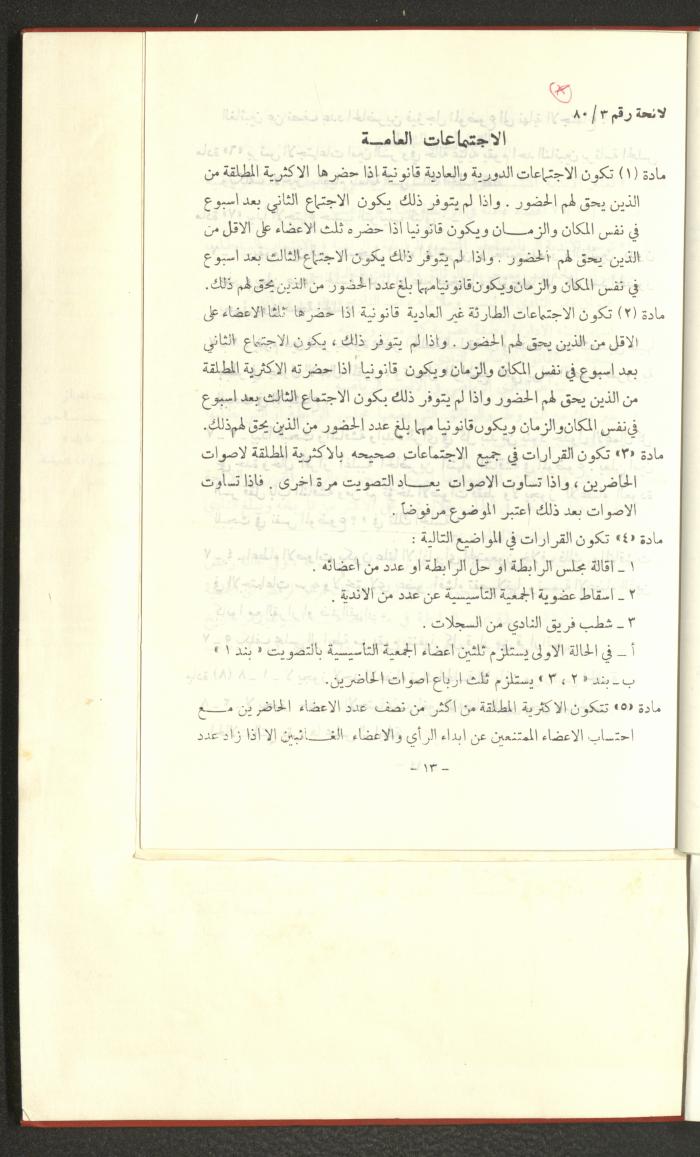 لائحة رقم ٨٠/٣
الاجتماعات العامـــة
مادة (١) تكون الاجتماعات الدورية والعادية قانونية اذا حضرها الاكثرية المطلقة من
الذين يحق لهم الحضور . واذا لم يتوفر ذلك يكون الاجتماع الثاني بعد اسبوع
في نفس المكان والزمـــان ويكون قانونيا اذا حضره ثلث الاعضاء على الاقل من
الذين يحق لهم الحضور . واذا لم يتوفر ذلك يكون الاجتماع الثالث بعد اسبوع
في نفس المكان والزمان ويكون قانونيا مهما بلغ عدد الحضور من الذين يحق لهم ذلك.
مادة (٢) تكون الاجتماعات الطارئة غير العادية قانونية اذا حضرها ثلثا الاعضاء على
الاقل من الذين يحق لهم الحضور . واذا لم يتوفر ذلك ، يكون الاجتماع الثاني
بعد اسبوع في نفس المكان والزمان ويكون قانونيا اذا حضرته الاكثرية المطلقة
من الذين يحق لهم الحضور واذا لم يتوفر ذلك يكون الاجتماع الثالث بعد اسبوع
في نفس المكان والزمان ويكون قانونيا مهما بلغ عدد الحضور من الذين يحق لهم ذلك.
مادة «٣» تكون القرارات في جميع الاجتماعات صحيحه بالاكثرية المطلقة لاصوات
الحاضرين ، واذا تساوت الاصوات يعـــاد التصويت مرة اخرى . فاذا تساوت
الاصوات بعد ذلك اعتبر الموضوع مرفوضاً .
مادة «٤» تكون القرارات في المواضيع التالية :
١ ـ اقالة مجلس الرابطة او حل الرابطة او عدد من اعضائه .
٢ ـ اسقاط عضوية الجمعية التأسيسية عن عدد من الاندية .
٣ ـ شطب فريق النادي من السجلات .
أ ـ في الحالة الاولى يستلزم ثلثين اعضاء الجمعية التأسيسية بالتصويت « بند ١ »
ب ـ بند « ٢ ، ٣ » يستلزم ثلث ارباع اصوات الحاضرين.
مادة «٥» تتكون الاكثرية المطلقة من اكثر من نصف عدد الاعضاء الحاضرين مـــع
احتساب الاعضاء الممتنعين عن ابداء الرأي والاعضاء الغـــائبين الا اذا زاد عدد
ـ ١٣ ـ